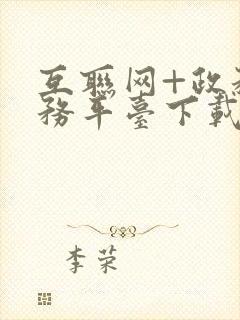 互聯网+政
務平臺下載
李荣